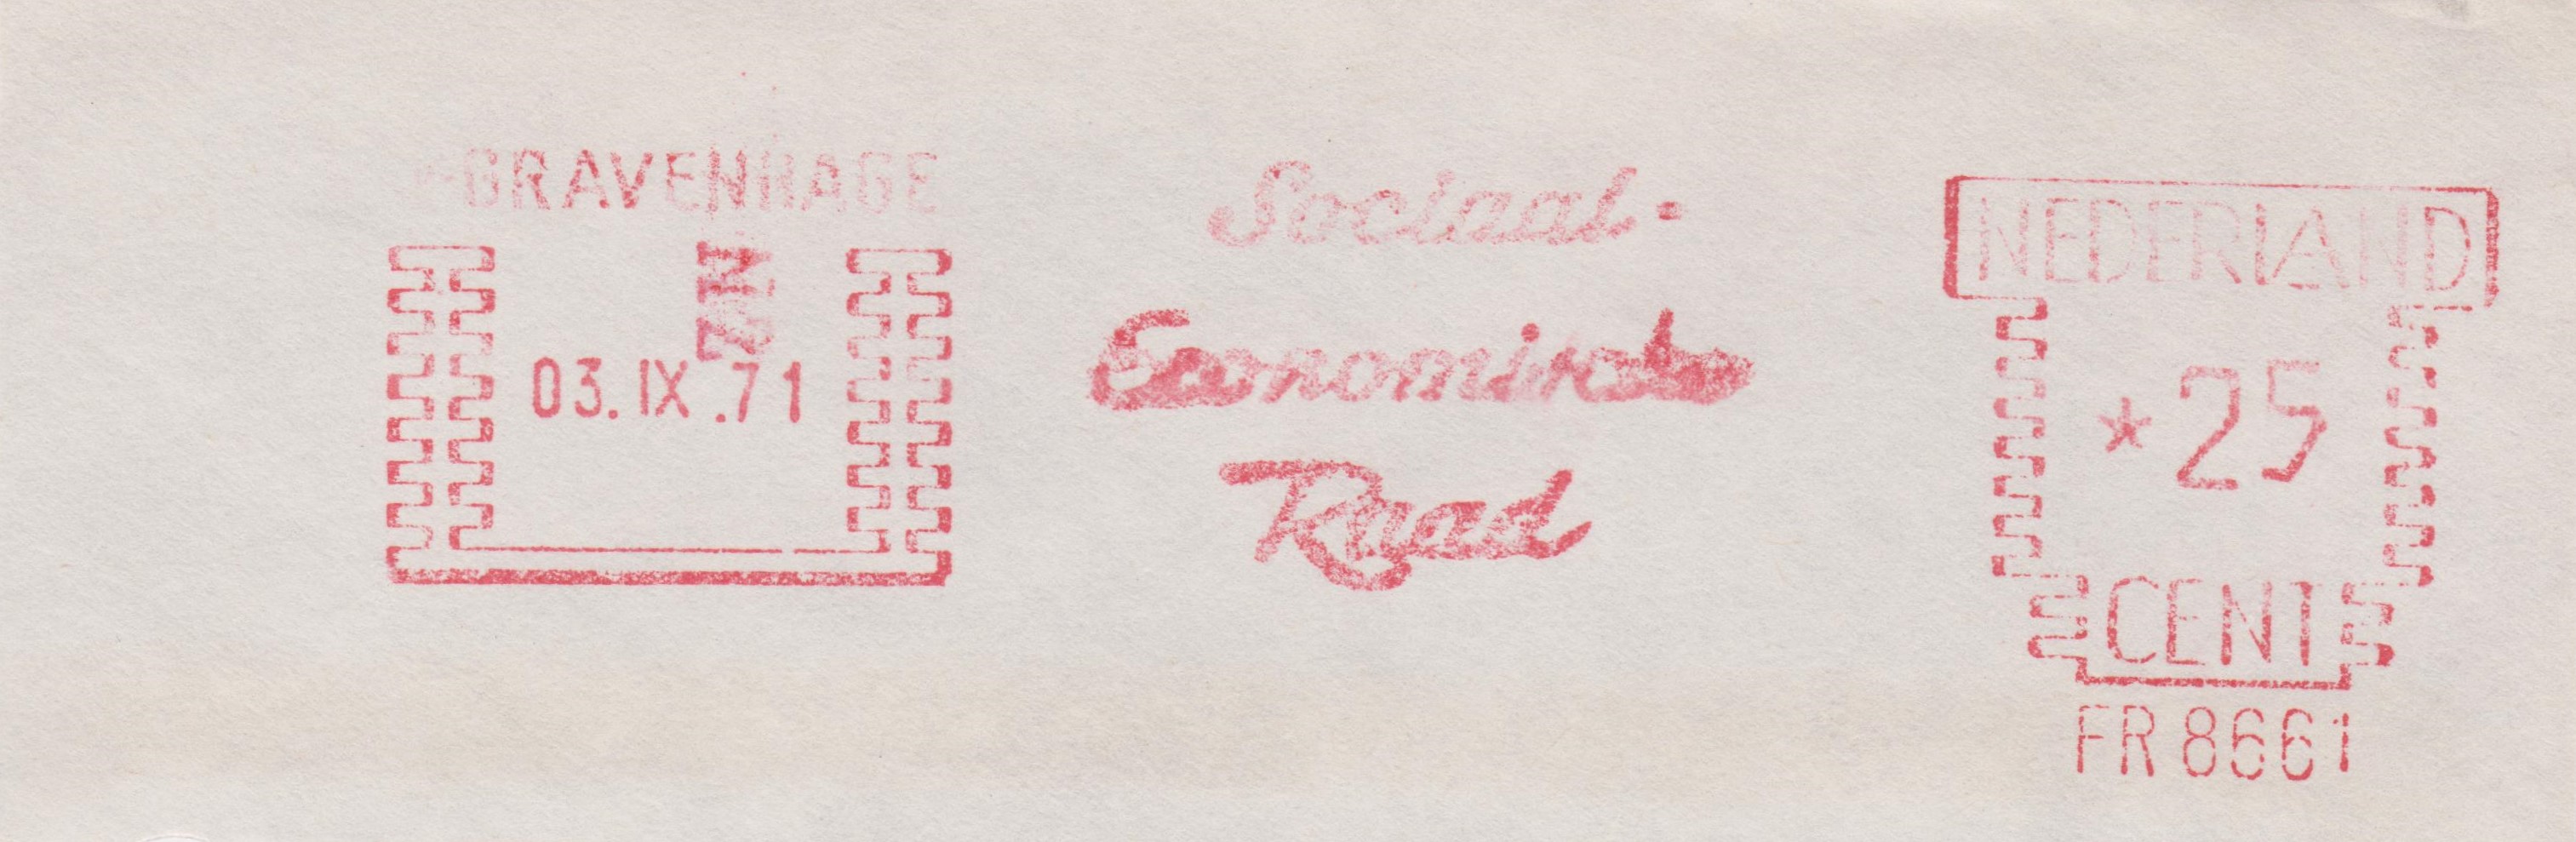 GRAVENHAGE
03.IX.71
Sociaal-
Economische
Raad
NEDERLAND
*25
CENT
FR 8661